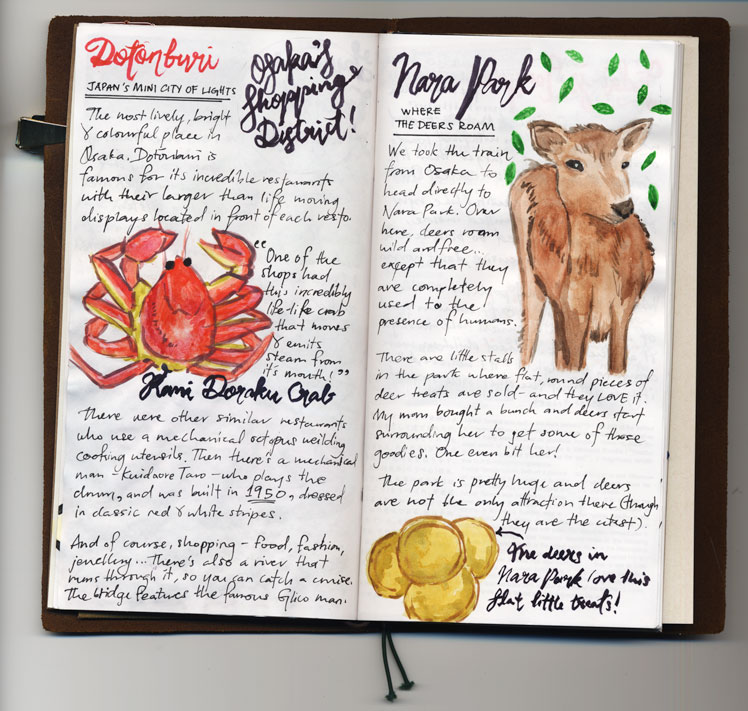 Dotonburi
JAPAN'S MINI CITY OF LIGHTS
Osaka's
Shopping
District!
The most lively, bright
& colourful place in
Osaka. Dotonburi is
famous for its incredible restaurants
with their larger than life moving
displays located in front of each resto.
"One of the
shops had
this incredibly
life-like crab
that moves
& emits
steam from
it's mouth!"
Kani Doraku Crab
There were other similar restaurants
who use a mechanical octopus weilding
cooking utensils. Then there's a mechanical
man - Kuidaore Taro - who plays the
drum, and was built in 1950, dressed
in classic red & white stripes.
And of course, shopping - food, fashion,
jewellery... There's also a river that
runs through it, so you can catch a cruise.
The bridge features the famous Glico man.
Nara Park
WHERE
THE DEERS ROAM
We took the train
from Osaka to
head directly to
Nara Park. Over
here, deers roam
wild and free...
except that they
are completely
used to the
presence of humans.
There are little stalls
in the park where flat, round pieces of
deer treats are sold - and they LOVE it.
My mom bought a bunch and deers start
surrounding her to get some of those
goodies. One even bit her!
The park is pretty huge and deers
are not the only attraction there (though
they are the cutest).
The deers in
Nara Park love this
flat little treats!